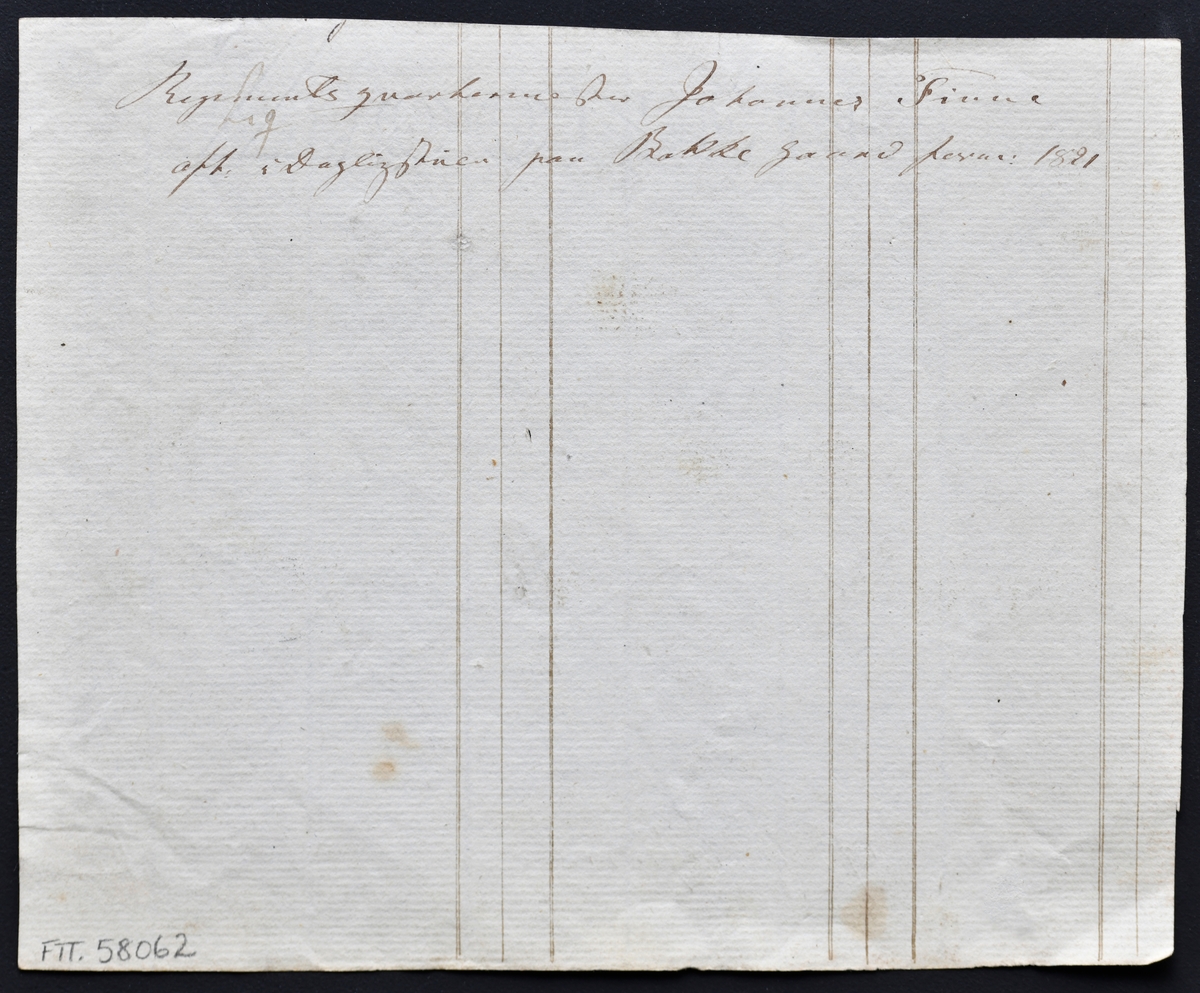 Regimentsqvarteermester Johannes Finne
aft. i Dagligstuen paa Bakke Gaard 1821
FTT. 58062